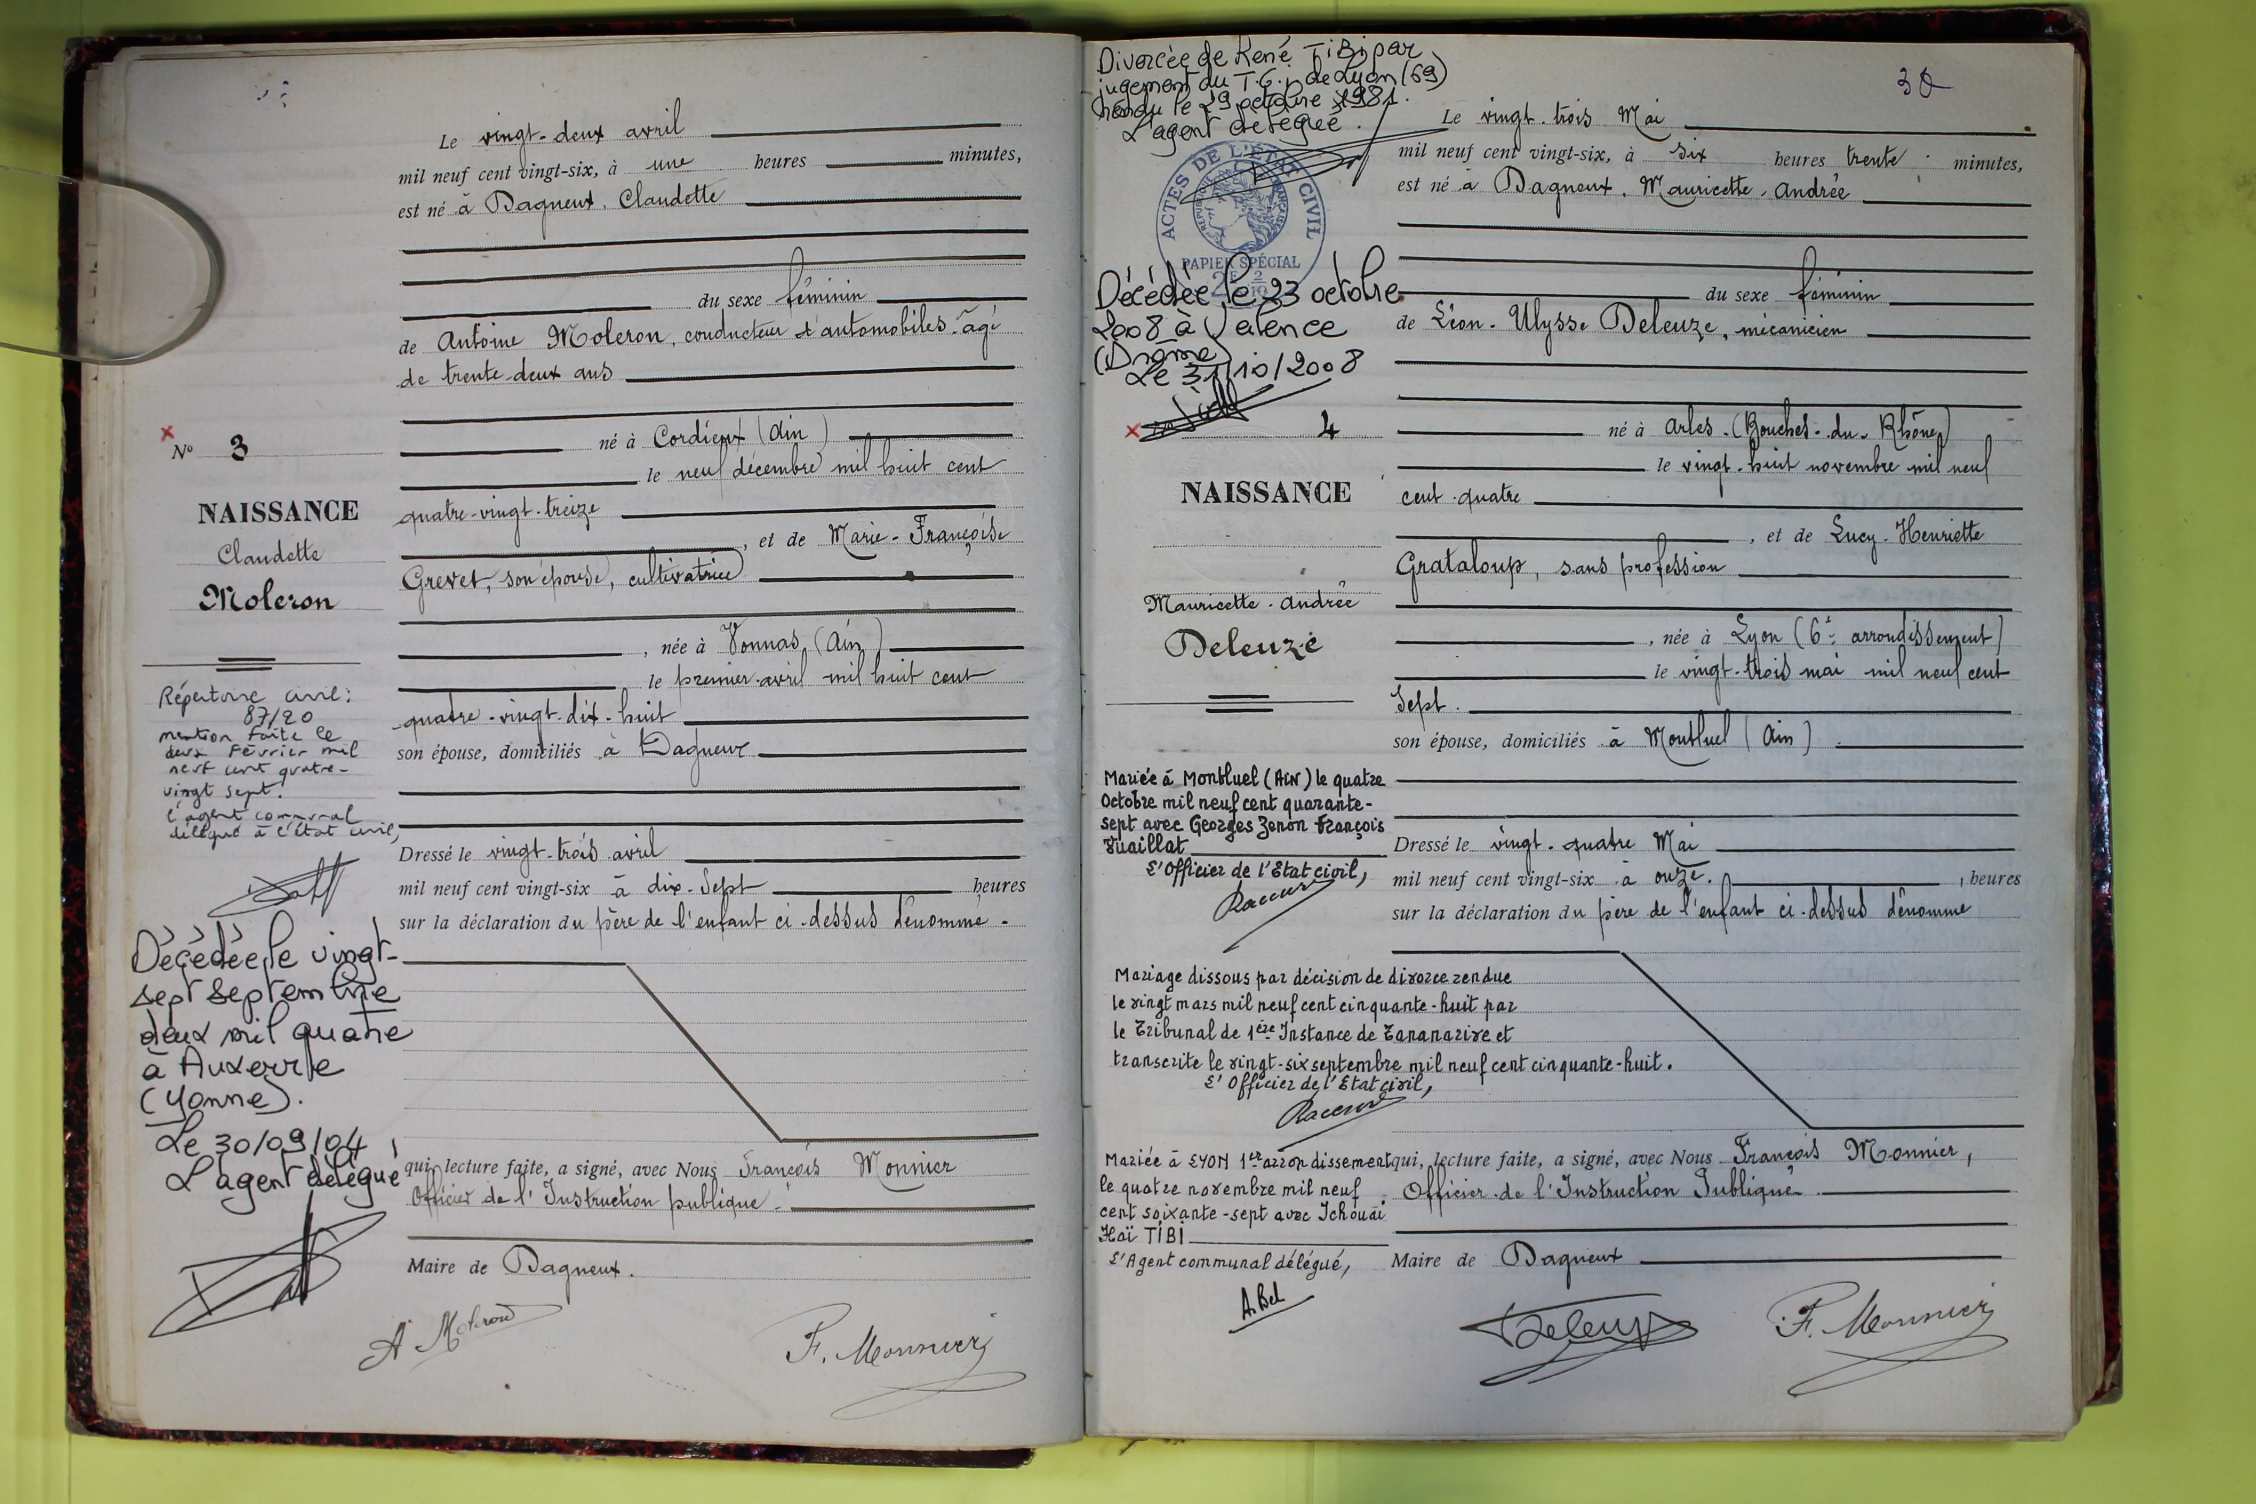 Le vingt-deux avril
mil neuf cent vingt-six, à une heures minutes,
est né à Dagneux, Claudette
du sexe féminin
de Antoine Moleron, conducteur d'automobiles, âgé
de trente-deux ans
né à Cordieux (Ain)
le neuf décembre mil huit cent
quatre-vingt-treize
, et de Marie-Françoise
Grevet, son épouse, cultivatrice
, née à Vonnas (Ain)
le premier avril mil huit cent
quatre-vingt-dix-huit
son épouse, domiciliés à Dagneux
Dressé le vingt-trois avril
mil neuf cent vingt-six à dix-sept heures
sur la déclaration du père de l'enfant ci-dessus dénommé.
qui, lecture faite, a signé, avec Nous François Monnier
Officier de l'Instruction publique.
Maire de Dagneux.
A Moleron
F. Monnier
No 3
NAISSANCE
Claudette
Moleron
Répertoire civil:
87/20
mention faite le
deux Février mil
neuf cent quatre-
vingt sept.
l'agent communal
délégué à l'état civil,
Décédée le vingt-
sept septembre
deux mil quatre
à Auxerre
(Yonne).
Le 30/09/04
L'agent délégué
Divorcée de René TiBi par
jugement du T.G.i de Lyon (69)
rendu le 29 octobre 1981.
L'agent délégué.
ACTES DE L'ÉTAT CIVIL
PAPIER SPÉCIAL
Décédée le 23 octobre
2008 à Valence
(Drôme)
Le 31/10/2008
4
NAISSANCE
Mauricette-Andrée
Deleuze
Mariée à Montluel (Ain) le quatre
Octobre mil neuf cent quarante-
sept avec Georges Zenon François
Vuaillat
L'Officier de l'Etat civil,
Mariage dissous par décision de divorce rendue
le vingt mars mil neuf cent cinquante-huit par
le Tribunal de 1ère Instance de Tananarive et
transcrite le vingt-six septembre mil neuf cent cinquante-huit.
L'Officier de l'Etat civil,
Mariée à LYON 1er arrondissement
le quatre novembre mil neuf
cent soixante-sept avec Ichouaï
Haï TIBI
L'Agent communal délégué,
A. Bel
30
Le vingt-trois Mai
mil neuf cent vingt-six, à six heures trente minutes,
est né à Dagneux, Mauricette-Andrée
du sexe féminin
de Léon-Ulysse Deleuze, mécanicien
né à Arles (Bouches-du-Rhône)
le vingt-huit novembre mil neuf
cent-quatre
, et de Lucy-Henriette
Grataloup, sans profession
, née à Lyon (6e arrondissement)
le vingt-trois mai mil neuf cent
sept.
son épouse, domiciliés à Montluel (Ain)
Dressé le vingt-quatre Mai
mil neuf cent vingt-six à onze, heures
sur la déclaration du père de l'enfant ci-dessus dénommé
qui, lecture faite, a signé, avec Nous François Monnier,
Officier de l'Instruction Publique
Maire de Dagneux
Deleuze
F. Monnier